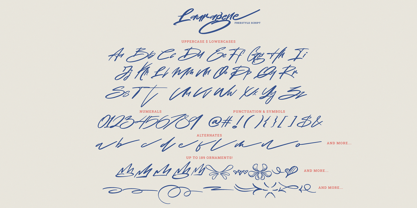 UPPERCASE & LOWERCASES
Aa Bb Cc Dd Ee Ff Gg Hh Ii
Jj Kk Ll Mm Nn Oo Pp Qq Rr
Ss Tt Uu Vv Ww Xx Yy Zz
NUMERALS PUNCTUATION & SYMBOLS
0123456789 @#!(){}[]$&
ALTERNATES
AND MORE...
UP TO 100 ORNAMENTS!
AND MORE...
AND MORE...